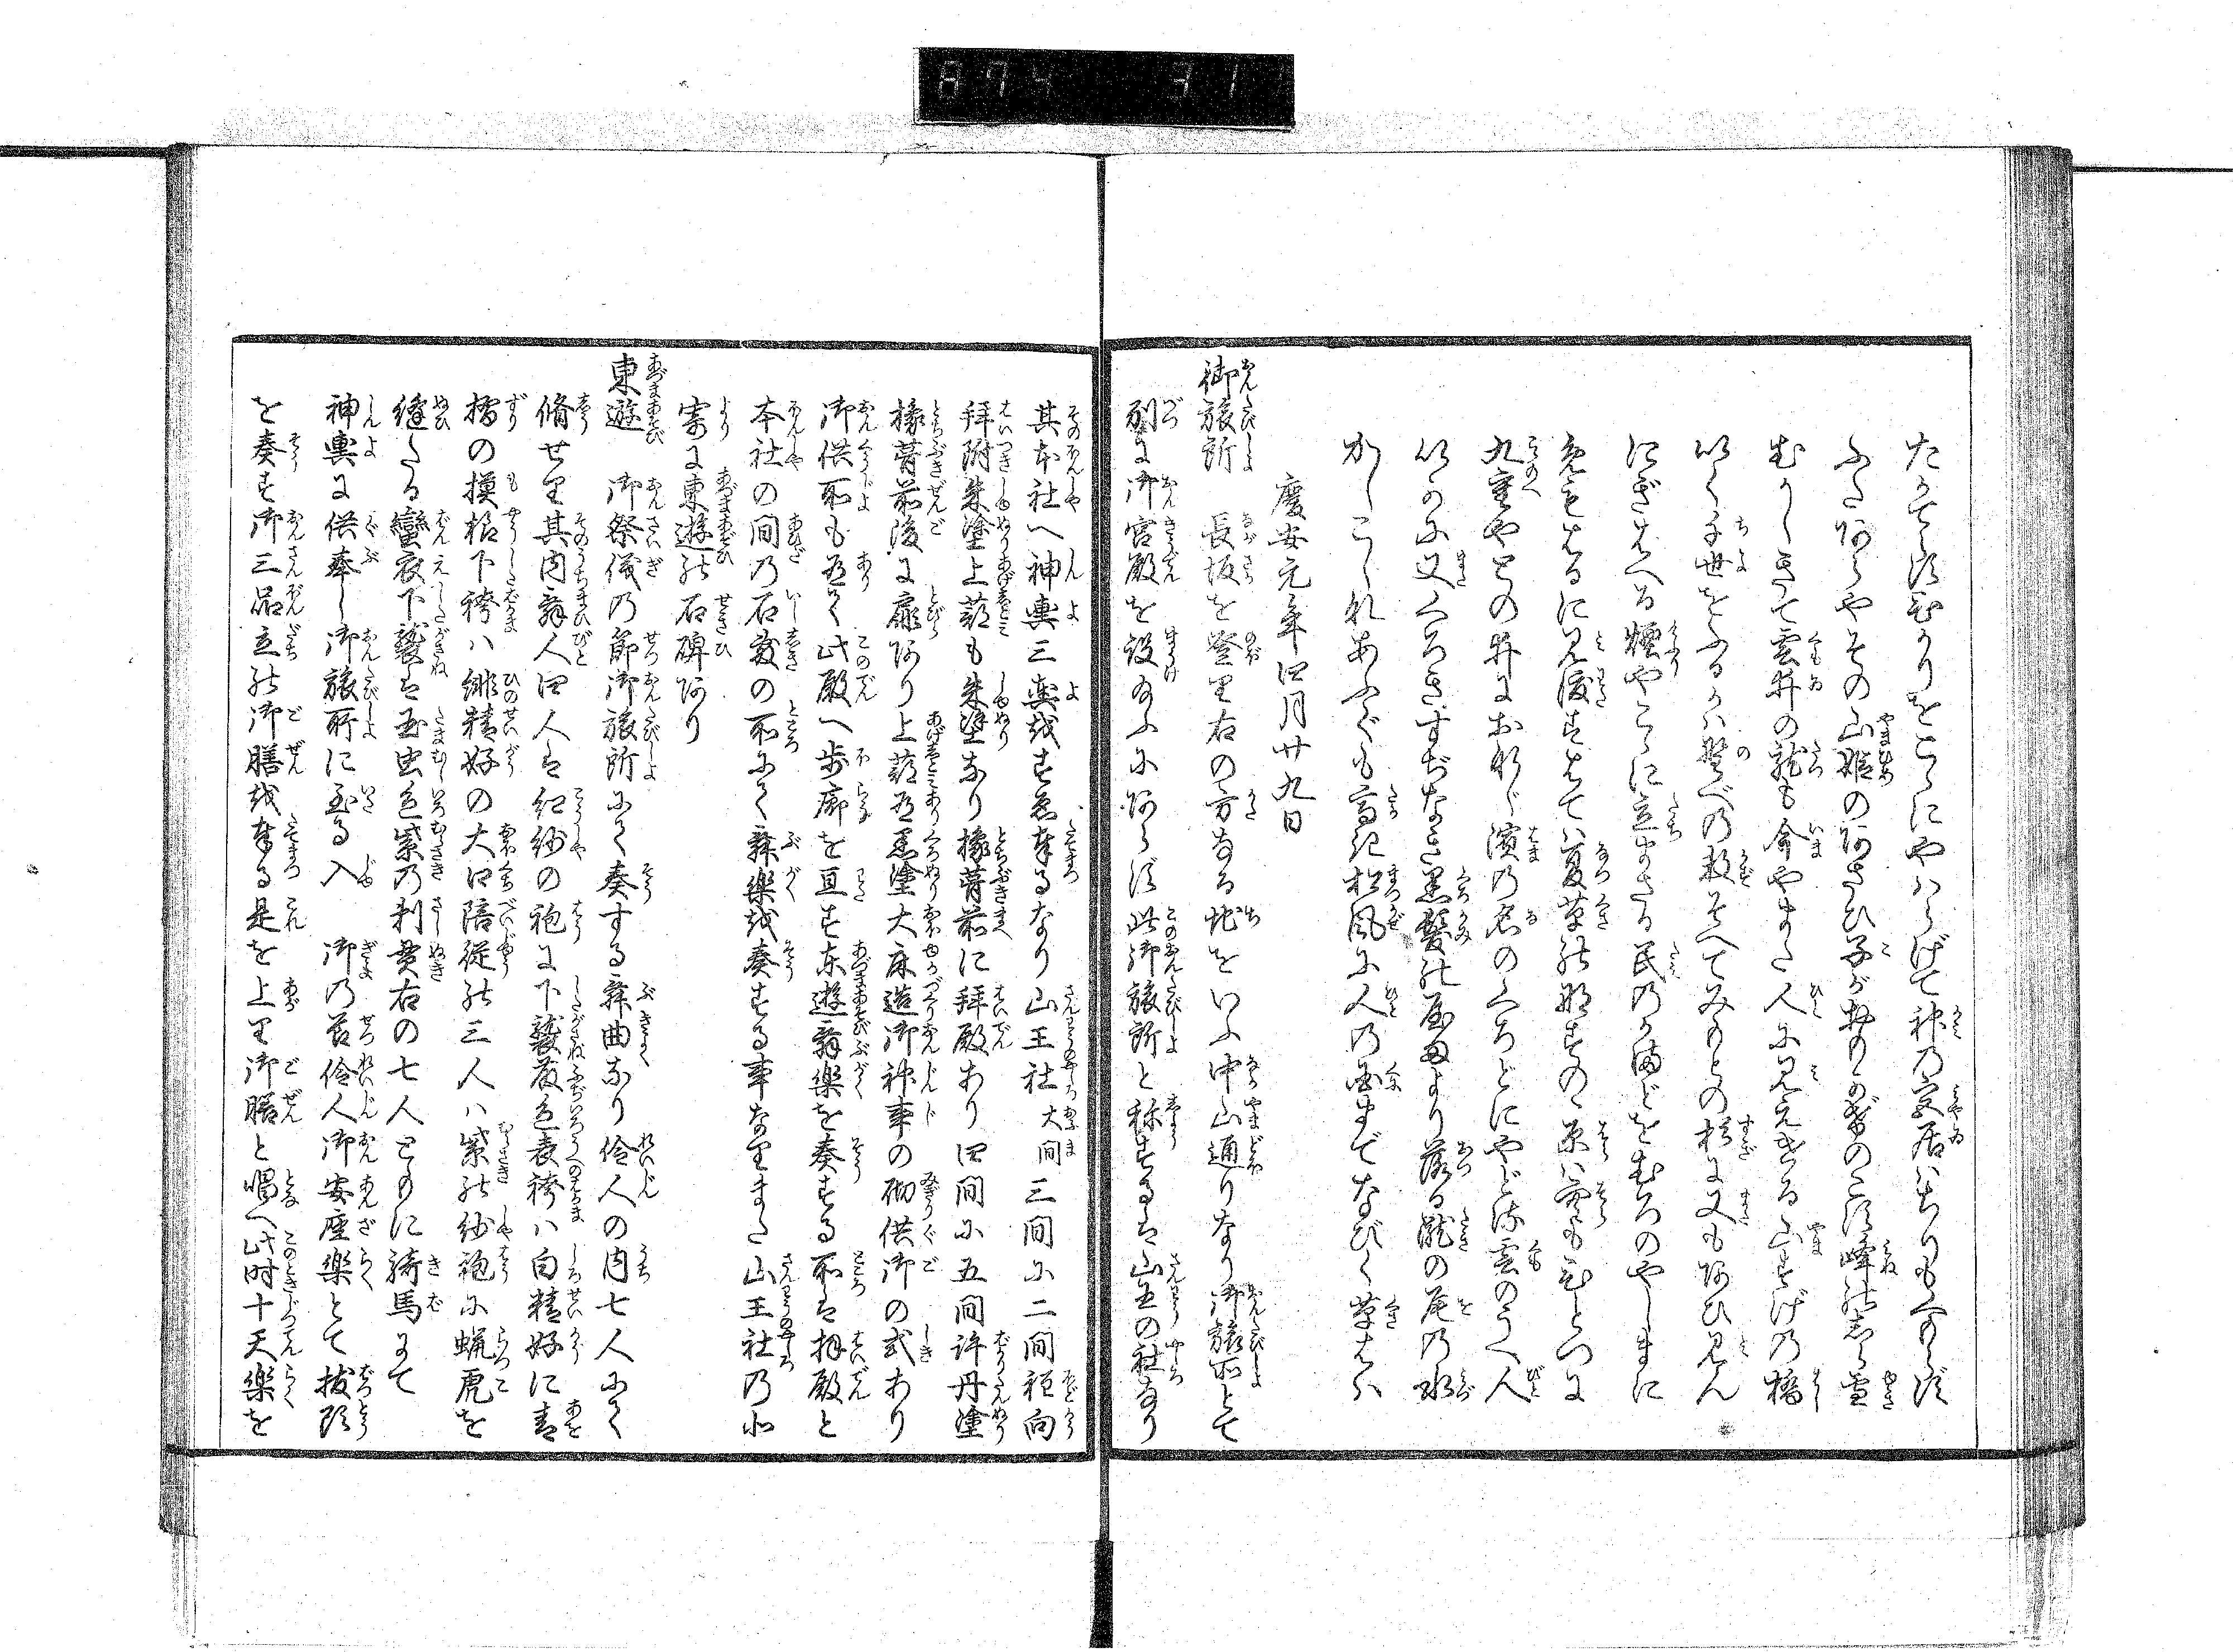 874 31
たかてらすひかりをこゝにやハらげて神乃宮居ハちりもくもらす
ふたあらやその山姫のあそひ子がかのこ峰の志ら雪
むかしきて雲井の龍も今やまた人に見えける山すげの橋
いく千世をふるかハ野べ乃数そへてみかとの杉に又もあひ見ん
にぎはへる煙やこゝに立まさる民乃かまどをむろのやしまに
見わたるに見渡すはてハ夏草の那すの原ハ空もひとつに
九重やとの井におなじ濱乃名のくろどにやどる雲のうへ人
いかに又くろきすぢなき黒髪の山より落る瀧の尾乃水
かしこしなあふぐも高き松風に人乃国までなびく草とハ
慶安元年四月廿九日
御旅所 長坂を登里右の方なる地をいふ中山通りなり御旅所とて
別に御宮殿を設るにあらす此御旅所と称するは山王の社なり
其本社へ神輿三輿をすゑ奉るなり山王社大間三間に二間程向
拜附朱塗上蔀も朱塗なり椽葺前に拜殿あり四間に五間許丹塗
椽葺前後に扉あり上蔀有黒塗大床造御神事の砌供御の式あり
御供所も有て此殿へ歩廊を亘す東遊舞楽を奏する所は拝殿と
本社の間乃石敷の所にて舞楽を奏する事なりまた山王社乃北
寄に東遊の石碑あり
東遊 御祭儀の節御旅所にて奏する舞曲なり伶人の内七人にて
脩せり其内舞人四人は紅紗の袍に下襲藤色表袴ハ白精好に青
摺の摸様下袴ハ緋精好の大口陪従の三人ハ紫の紗袍に蝋虎を
縫たる蠻衣下襲は玉虫色紫乃刺貫右の七人ともに騎馬にて
神輿に供奉し御旅所に至る入 御乃節伶人御安座楽とて抜頭
を奏す御三品立の御膳を奉る是を上里御膳と唱へ此時十天楽を